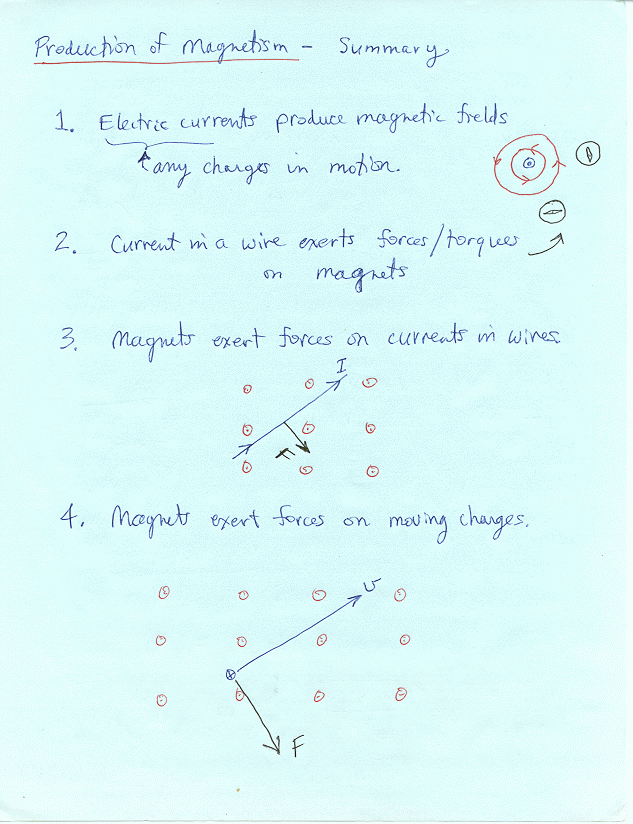 Production of Magnetism - Summary
1. Electric currents produce magnetic fields
any charges in motion.
2. Current in a wire exerts forces/torques
on magnets
3. Magnets exert forces on currents in wires.
I
F
4. Magnets exert forces on moving charges.
v
F